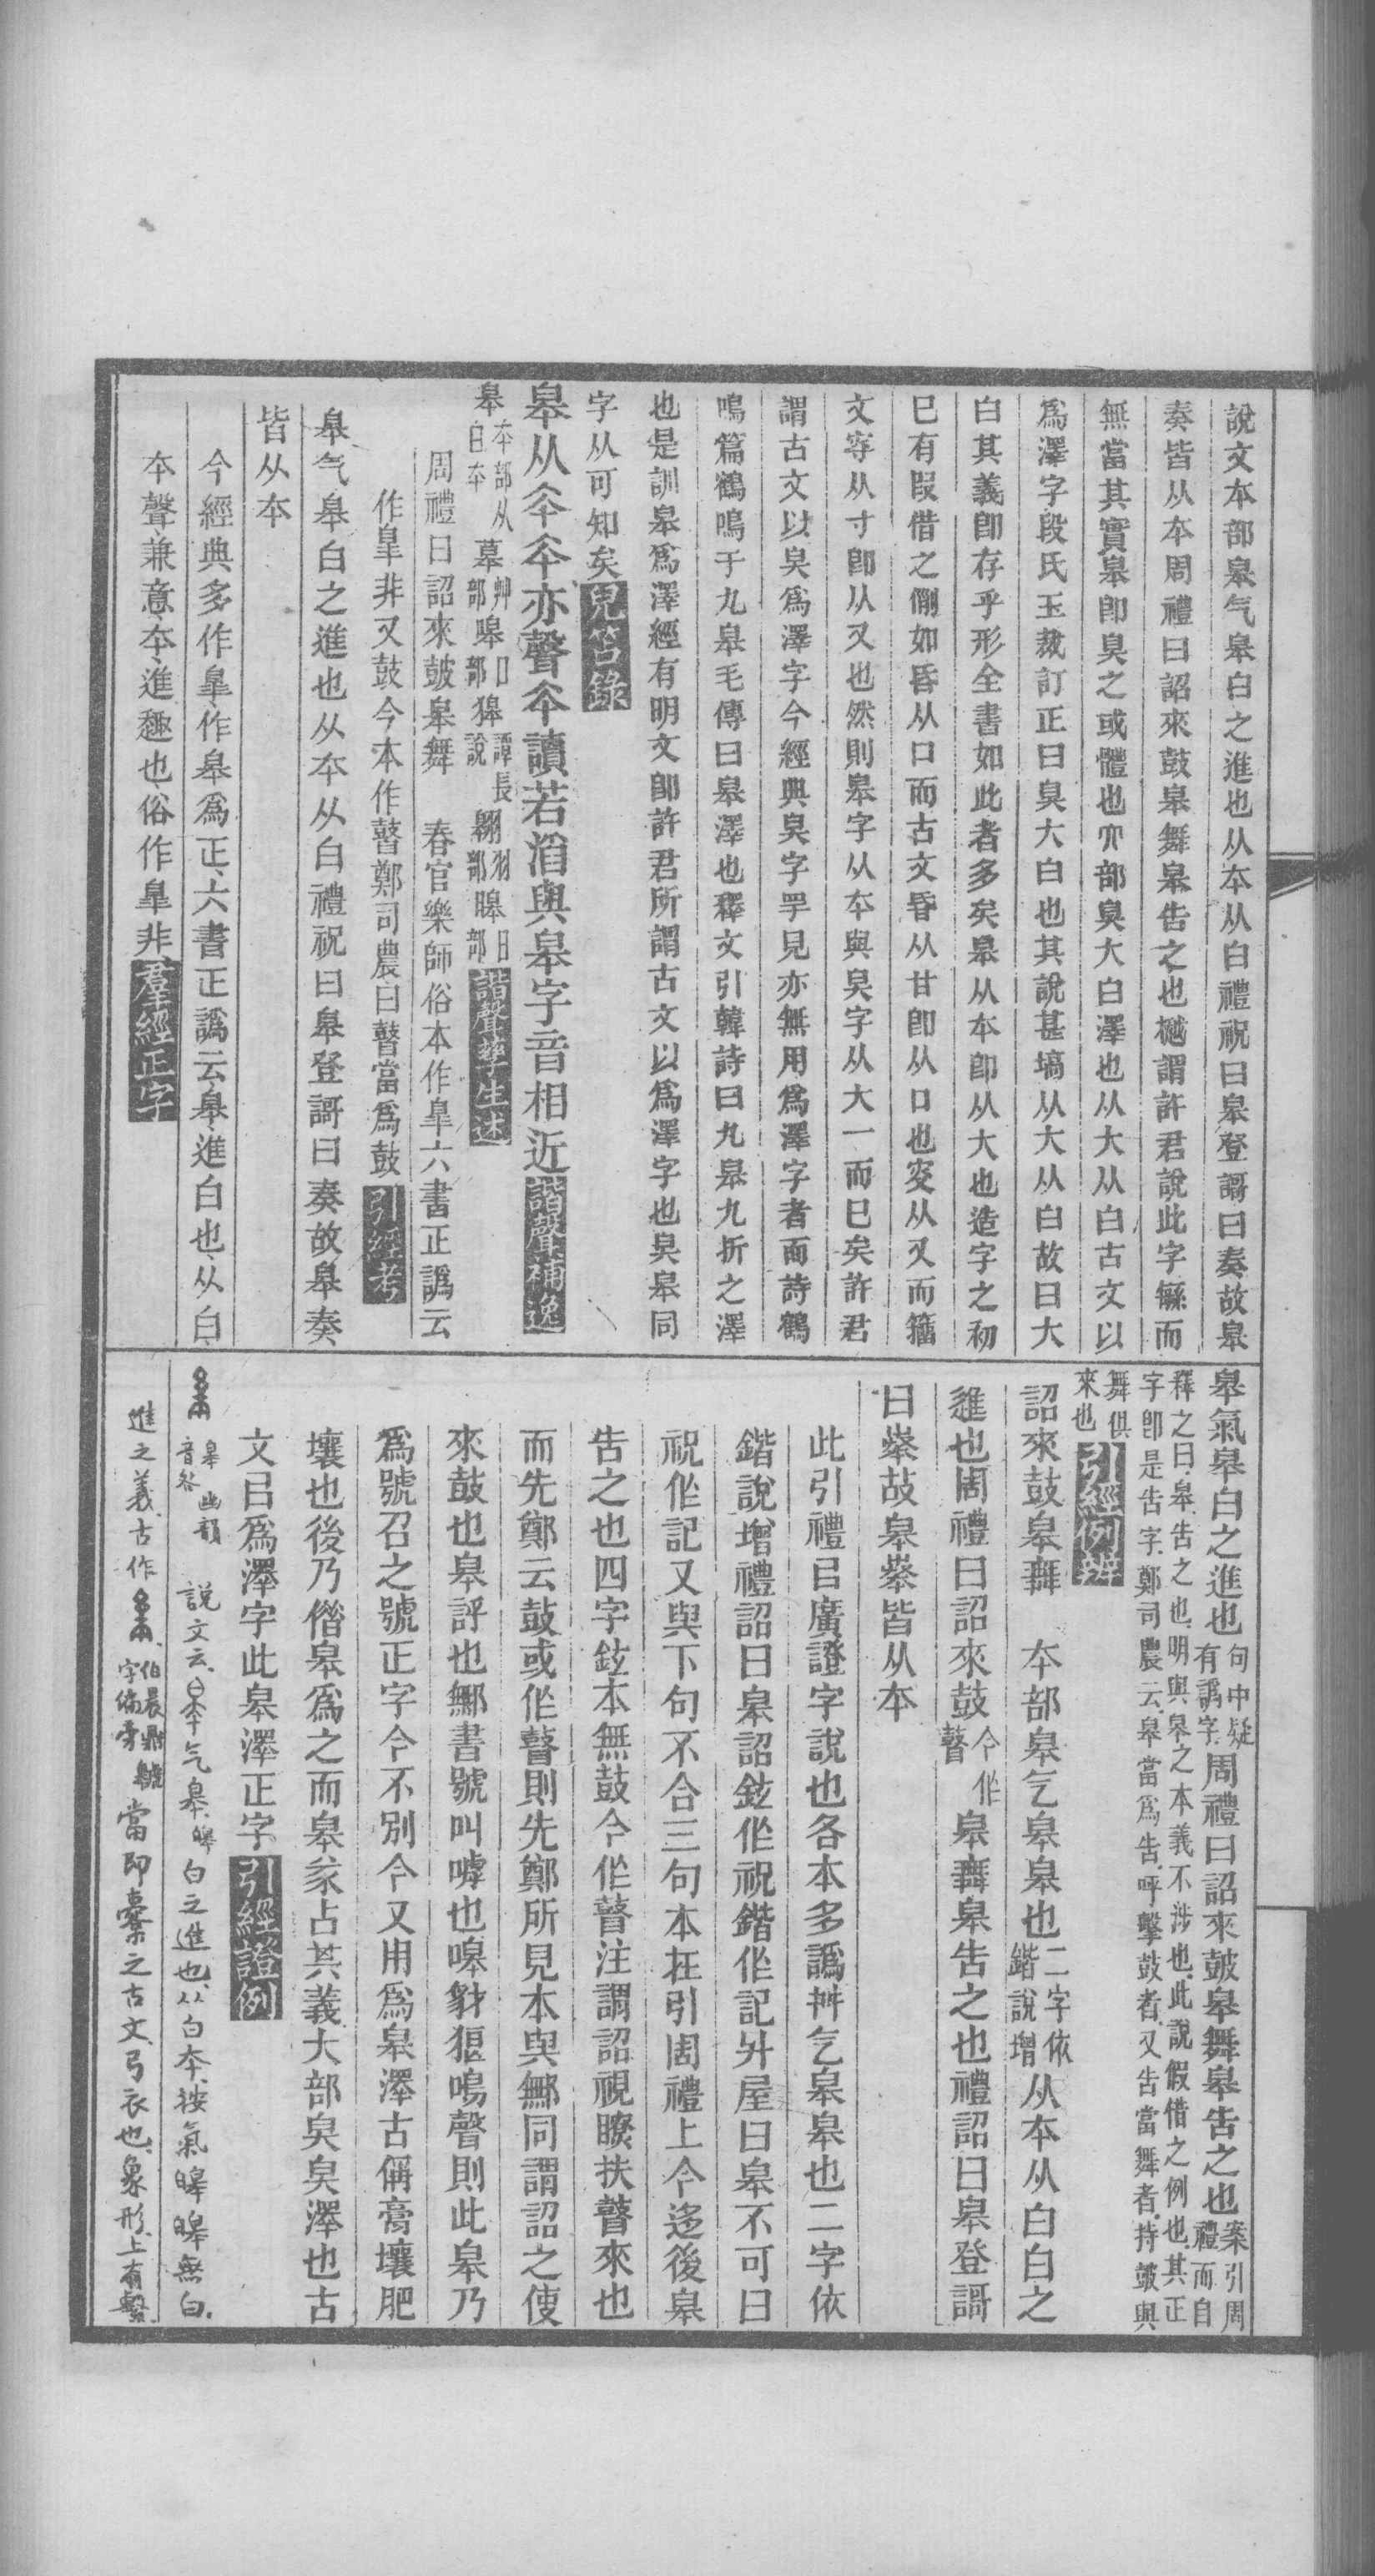 說文夲部皋气皋白之進也从夲从白禮祝曰皋登謌曰奏故皋
奏皆从夲周禮曰詔來鼓皋舞皋告之也樾謂許君說此字緐而
無當其實皋卽臭之或體也亣部臭大白澤也从大从白古文以
爲澤字段氏玉裁訂正曰臭大白也其說甚塙从大从白故曰大
白其義卽存乎形全書如此者多矣皋从夲卽从大也造字之初
巳有叚借之例如昏从口而古文昏从甘卽从口也叜从又而籀
文㝊从寸卽从又也然則皋字从夲與臭字从大一而巳矣許君
謂古文以臭爲澤字今經典臭字罕見亦無用爲澤字者而詩鶴
鳴篇鶴鳴于九皋毛傳曰皋澤也釋文引韓詩曰九皋九折之澤
也是訓皋爲澤經有明文卽許君所謂古文以爲澤字也臭皋同
字从可知矣 兒笘錄
皋从夲夲亦聲夲讀若滔與皋字音相近 諧聲補逸
皋 夲部从白夲 䔌 艸部 嗥 口部 獋 譚長說 翺 羽部 暤 日部 諧聲孳生述
周禮曰詔來鼓皋舞 春官樂師俗本作皐六書正譌云
作皐非又鼓今本作瞽鄭司農曰瞽當爲鼓 引經考
皋气皋白之進也从夲从白禮祝曰皋登謌曰奏故皋奏
皆从夲
今經典多作皐作皋爲正六書正譌云皋進白也从白
夲聲兼意夲進趣也俗作皐非 羣經正字
皋氣皋白之進也 句中疑有譌字 周禮曰詔來鼓皋舞皋告之也 案引周禮而自
釋之曰皋告之也明與皋之本義不涉也此說假借之例也其正
字卽是告字鄭司農云皋當爲告呼擊鼓者又告當舞者持鼓與
舞俱來也 引經例辨
詔來鼓皋舞 夲部皋气皋皋也 二字依鍇說增 从夲从白白之
進也周禮曰詔來鼓 今作瞽 皋舞皋告之也禮詔曰皋登謌
曰奏故皋奏皆从夲
此引禮㠯廣證字說也各本多譌挩气皋皋也二字依
鍇說增禮詔曰皋詔鉉作祝鍇作記升屋曰皋不可曰
祝作記又與下句不合三句本在引周禮上今迻後皋
告之也四字鉉本無鼓今作瞽注謂詔視瞭扶瞽來也
而先鄭云鼓或作瞽則先鄭所見本與鄦同謂詔之使
來鼓也皋評也鄦書號叫嘑也嗥豺狼鳴聲則此皋乃
爲號召之號正字今不別今又用爲皋澤古偁膏壤肥
壤也後乃偺皋爲之而皋㒸占其義大部臭臭澤也古
文㠯爲澤字此皋澤正字 引經證例
皋音咎 幽韻 說文云夲气皋皞白之進也从白夲按氣皞皞無白
進之義古作 伯晨鼎䩼字偏旁 當卽櫜之古文弓衣也象形上有繫